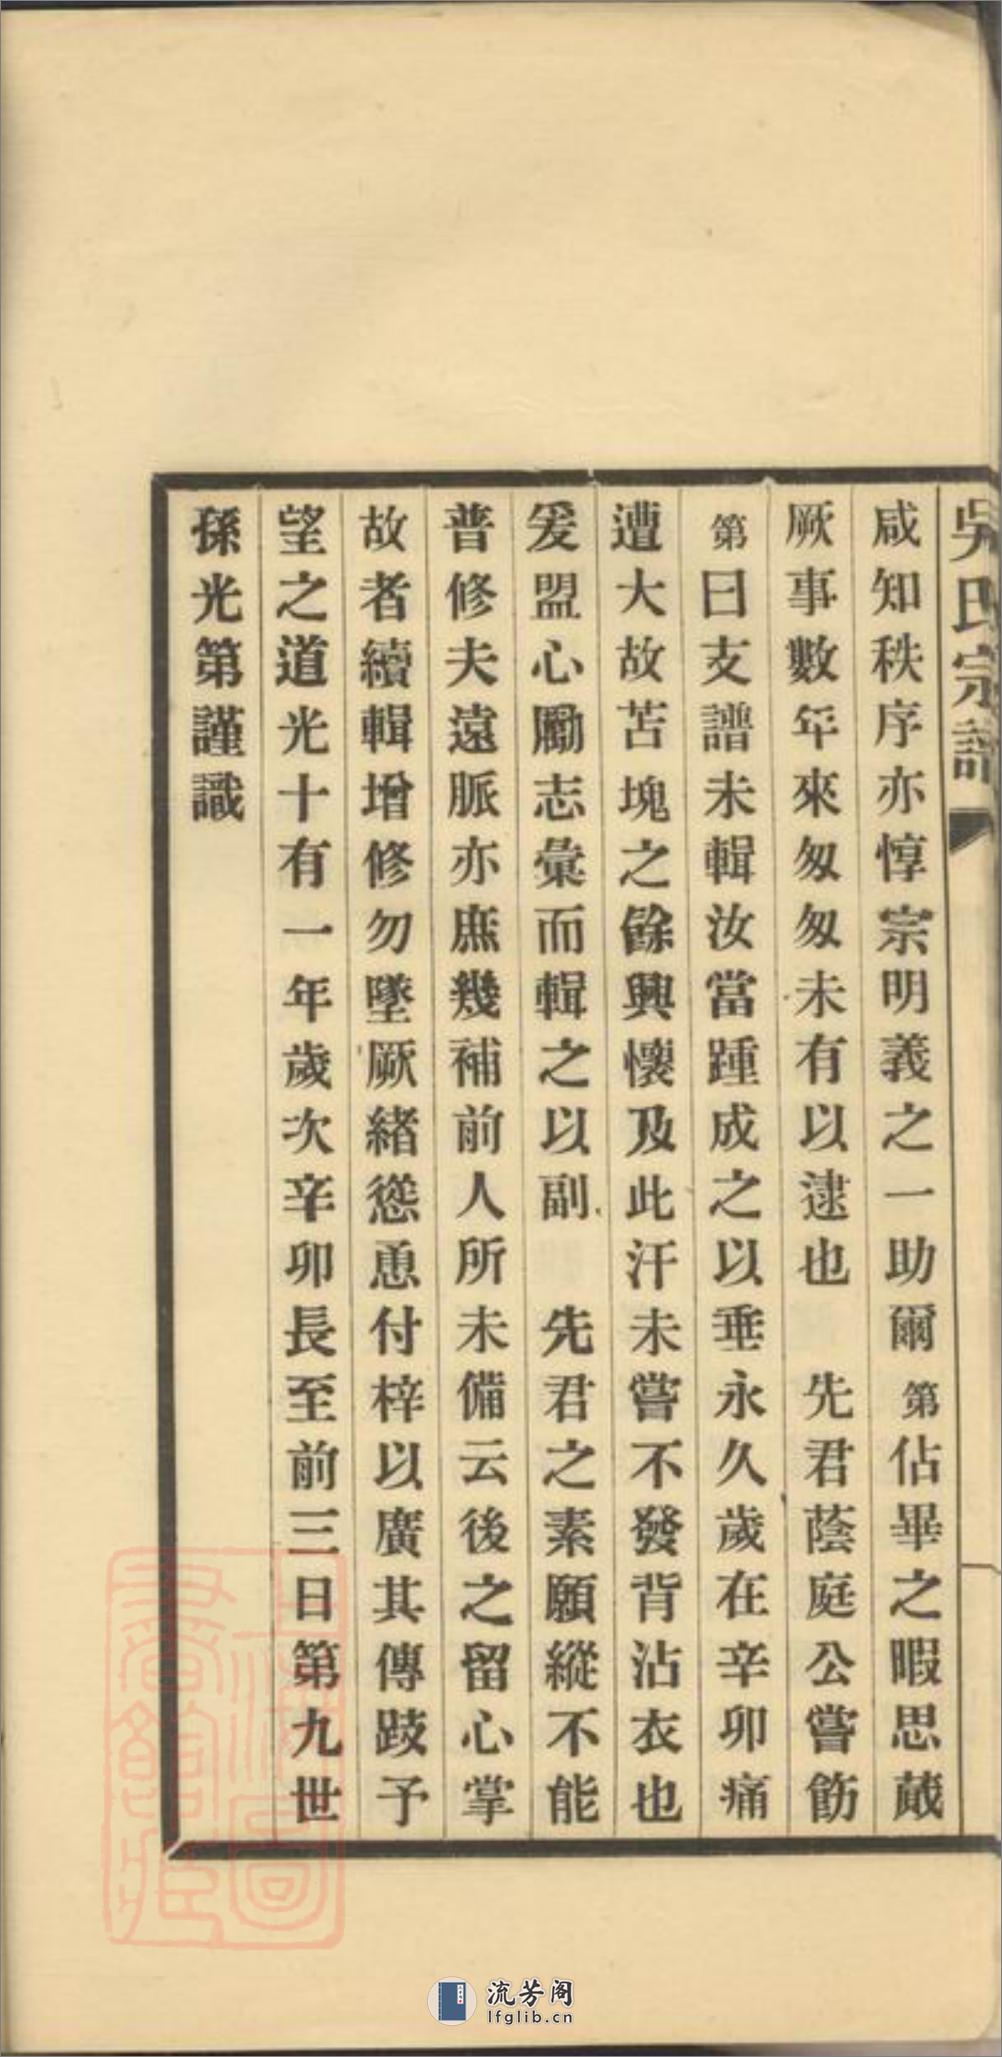 吳氏宗譜
咸知秩序亦惇宗明義之一助爾第佔畢之暇思蕆
厥事數年來匆匆未有以逮也先君蔭庭公嘗飭
第曰支譜未輯汝當踵成之以垂永久歲在辛卯痛
遭大故苫塊之餘興懷及此汗未嘗不發背沾衣也
爰盟心勵志彙而輯之以副先君之素願縱不能
普修夫遠脈亦庶幾補前人所未備云後之留心掌
故者續輯增修勿墜厥緒慫恿付梓以廣其傳跂予
望之道光十有一年歲次辛卯長至前三日第九世
孫光第謹識
上海圖書館藏
流芳阁
lfglib.cn